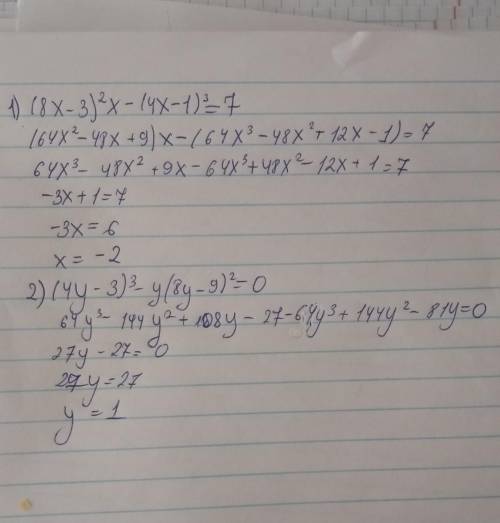 1) (8x-3)²x - (4x-1)³=7
(64x²-48x+9)x-(64x³-48x²+12x-1)=7
64x³- 48x²+9x-64x³+48x²-12x+1=7
-3x+1=7
-3x=6
x= -2
2) (4y-3)³- y(8y-9)²=0
64y³- 144y²+108y-27-64y³+144y²-81y=0
27y-27=0
27y=27
y=1